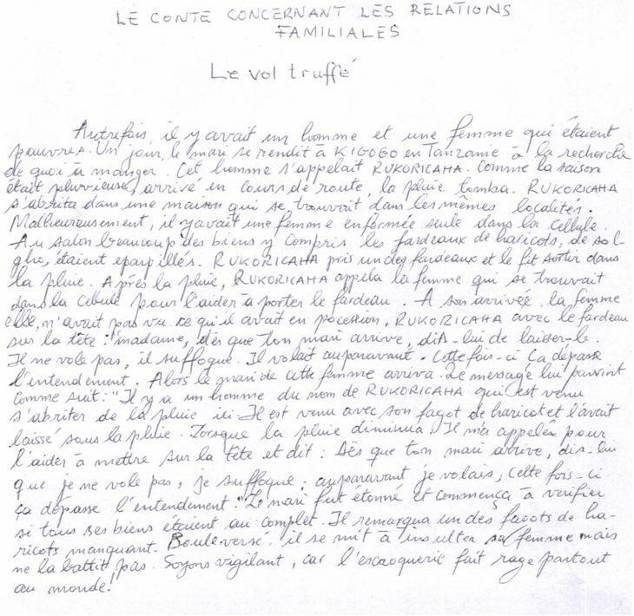 LE CONTE CONCERNANT LES RELATIONS
FAMILIALES
Le vol truffé
Autrefois, il y avait un homme et une femme qui étaient
pauvres. Un jour, le mari se rendit à KIGOGO en Tanzanie à la recherche
de quoi à manger. Cet homme s'appelait RUKORICAHA. Comme la saison
était pluvieuse, arrivé en cours de route, la pluie tomba. RUKORICAHA
s'abrita dans une maison qui se trouvait dans les mêmes localités.
Malheureusement, il y avait une femme enfermée seule dans la cellule.
Au salon beaucoup des biens y compris les fardeaux de haricots, de sor
gho, étaient eparpillés. RUKORICAHA pris un des fardeaux et le fit sortir dans
la pluie. Après la pluie, RUKORICAHA appela la femme qui se trouvait
dans la cellule pour l'aider à porter le fardeau. A son arrivée, la femme
elle, n'avait pas vu ce qu'il avait en pocession, RUKORICAHA avec le fardeau
sur la tête : "madame, dès que ton mari arrive, dis-lui de laisser-le.
Il ne vole pas, il suffoque. Il volait auparavant. Cette fois-ci ça dépasse
l'entendement. Alors le mari de cette femme arriva. Le message lui parvint
comme suit : "Il y a un homme du nom de RUKORICAHA qui est venu
s'abriter de la pluie ici. Il est venu avec son fagot de haricot et l'avait
laissé sous la pluie. Lorsque la pluie diminua, Il m'a appelée pour
l'aider à mettre sur la tête et dit : Dès que ton mari arrive, dis-lui
que je ne vole pas, je suffoque, auparavant je volais, cette fois-ci
ça dépasse l'entendement." Le mari fut étonné et commença à vérifier
si tous ses biens étaient au complet. Il remarqua un des fagots de ha-
ricots manquant. Bouleversé, il se mit à insulter sa femme mais
ne la battit pas. Soyons vigilant, car l'escroquerie fait rage partout
au monde!